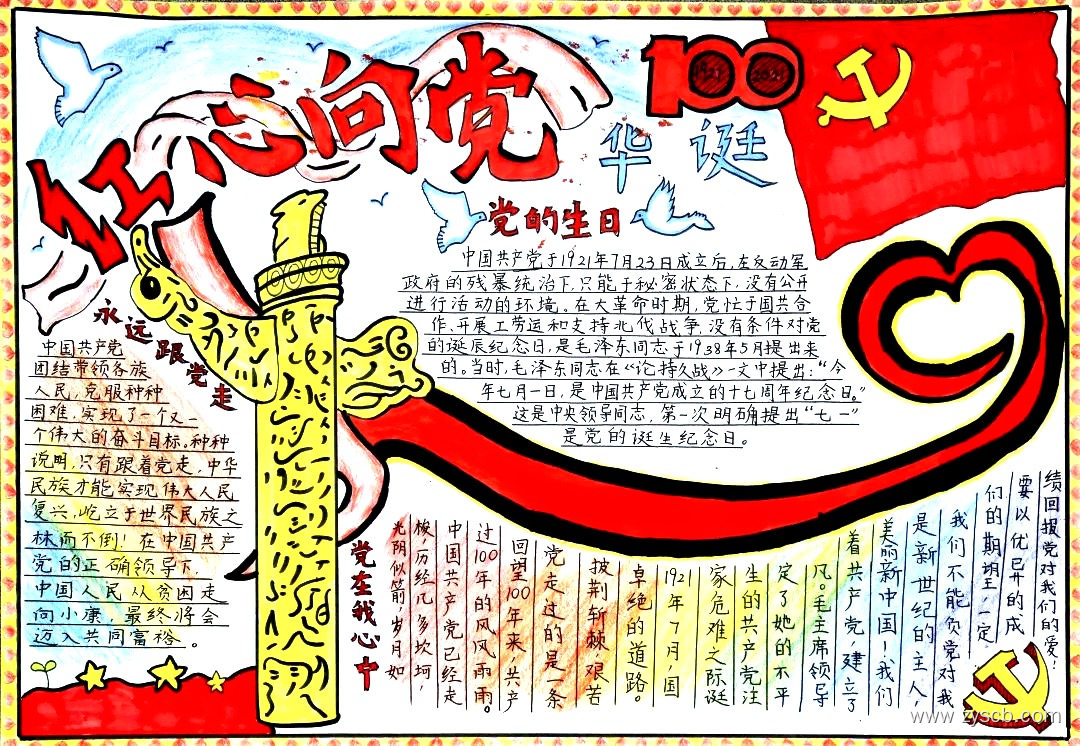 红心向党
100
1921
2021
华诞
党的生日
中国共产党于1921年7月23日成立后,在反动军
政府的残暴统治下,只能于秘密状态下,没有公开
进行活动的环境。在大革命时期,党忙于国共合
作、开展工劳运和支持北伐战争,没有条件对党
的诞辰纪念日,是毛泽东同志于1938年5月提出来
的。当时,毛泽东同志在《论持久战》一文中提出:“今
年七月一日,是中国共产党成立的十七周年纪念日。”
这是中央领导同志,第一次明确提出“七一”
是党的诞生纪念日。
永远跟党走
中国共产党
团结带领各族
人民,克服种种
困难,实现了一个又一
个伟大的奋斗目标。种种
说明,只有跟着党走,中华
民族才能实现伟大人民
复兴,屹立于世界民族之
林而不倒!在中国共产
党的正确领导下,
中国人民从贫困走
向小康,最终将会
迈入共同富裕。
党在我心中
光阴似箭,岁月如
梭,历经几多坎坷,
中国共产党已经走
过100年的风风雨雨。
回望100年来,共产
党走过的是一条
披荆斩棘,艰苦
卓绝的道路。
1921年7月,国
家危难之际诞
生的共产党注
定了她的不平
凡。毛主席领导
着共产党,建立了
美丽新中国!我们
是新世纪的主人,
我们不能负党对我
们的期望,一定
要以优异的成
绩回报党对我们的爱!
www.zyscb.com